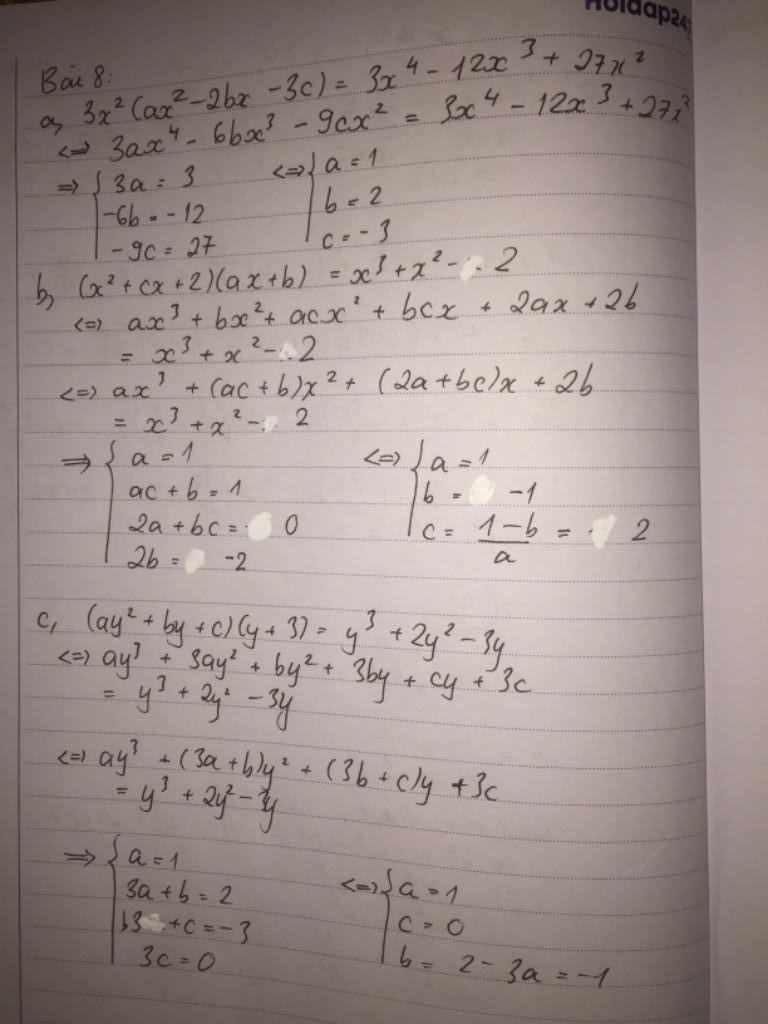 Holdap247
Bài 8:
a, 3x² (ax² - 2bx - 3c) = 3x⁴ - 12x³ + 27x²
<=> 3ax⁴ - 6bx³ - 9cx² = 3x⁴ - 12x³ + 27x²
=> { 3a = 3 <=> { a = 1
-6b = -12 b = 2
-9c = 27 c = -3
b, (x² + cx + 2)(ax + b) = x³ + x² - 2
<=> ax³ + bx² + acx² + bcx + 2ax + 2b
= x³ + x² - 2
<=> ax³ + (ac + b)x² + (2a + bc)x + 2b
= x³ + x² - 2
=> { a = 1 <=> { a = 1
ac + b = 1 b = -1
2a + bc = 0 c = (1 - b)/a = 2
2b = -2
c, (ay² + by + c)(y + 3) = y³ + 2y² - 3y
<=> ay³ + 3ay² + by² + 3by + cy + 3c
= y³ + 2y² - 3y
<=> ay³ + (3a + b)y² + (3b + c)y + 3c
= y³ + 2y² - 3y
=> { a = 1
3a + b = 2 <=> { a = 1
b3 + c = -3 c = 0
3c = 0 b = 2 - 3a = -1